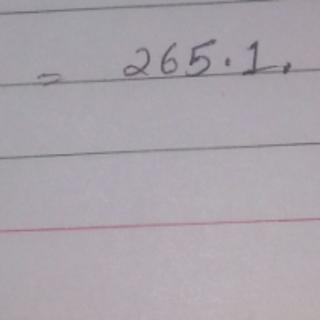 = 265.1.